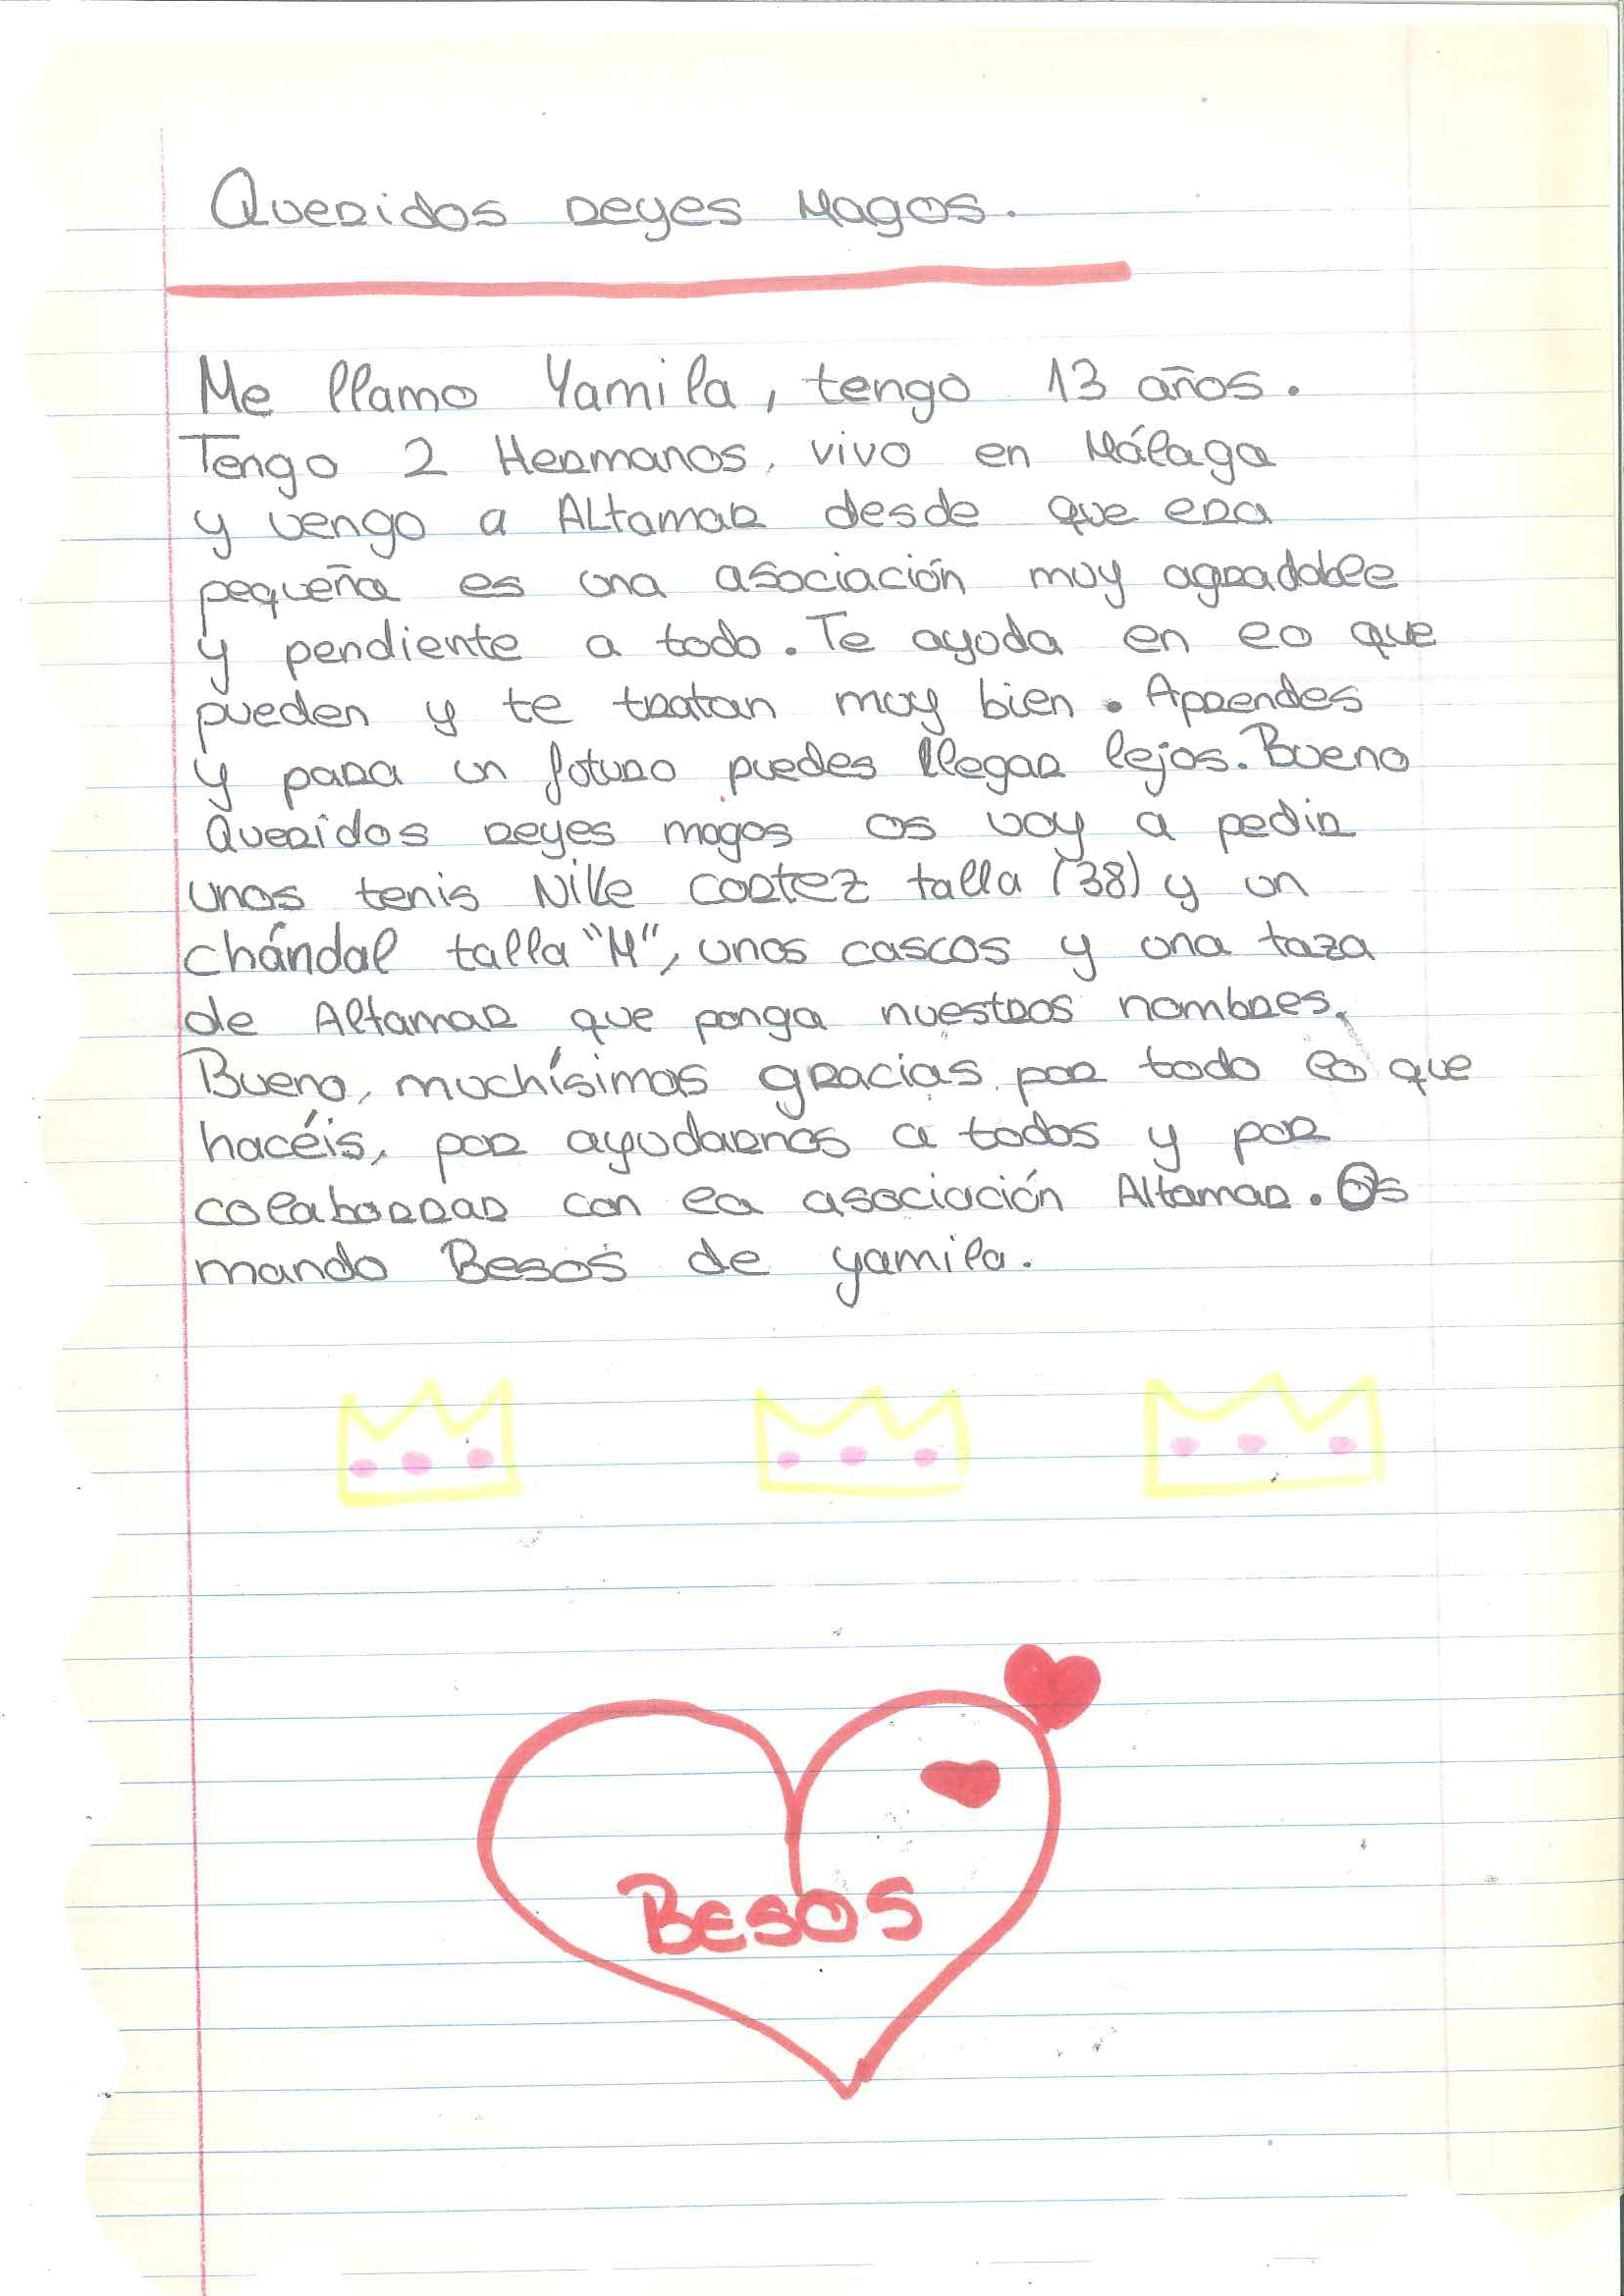 Queridos reyes Magos.
Me llamo Yamila, tengo 13 años.
Tengo 2 Hermanos, vivo en Málaga
y vengo a Altamar desde que era
pequeña es una asociación muy agradable
y pendiente a todo. Te ayuda en lo que
pueden y te tratan muy bien. Aprendes
y para un futuro puedes llegar lejos. Bueno
Queridos reyes magos os voy a pedir
unos tenis Nike cortez talla (38) y un
chándal talla "M", unos cascos y una taza
de Altamar que ponga nuestros nombres.
Bueno, muchísimas gracias por todo lo que
hacéis, por ayudarnos a todos y por
colaborrar con la asociación Altamar. Os
mando Besos de yamila.
BESOS